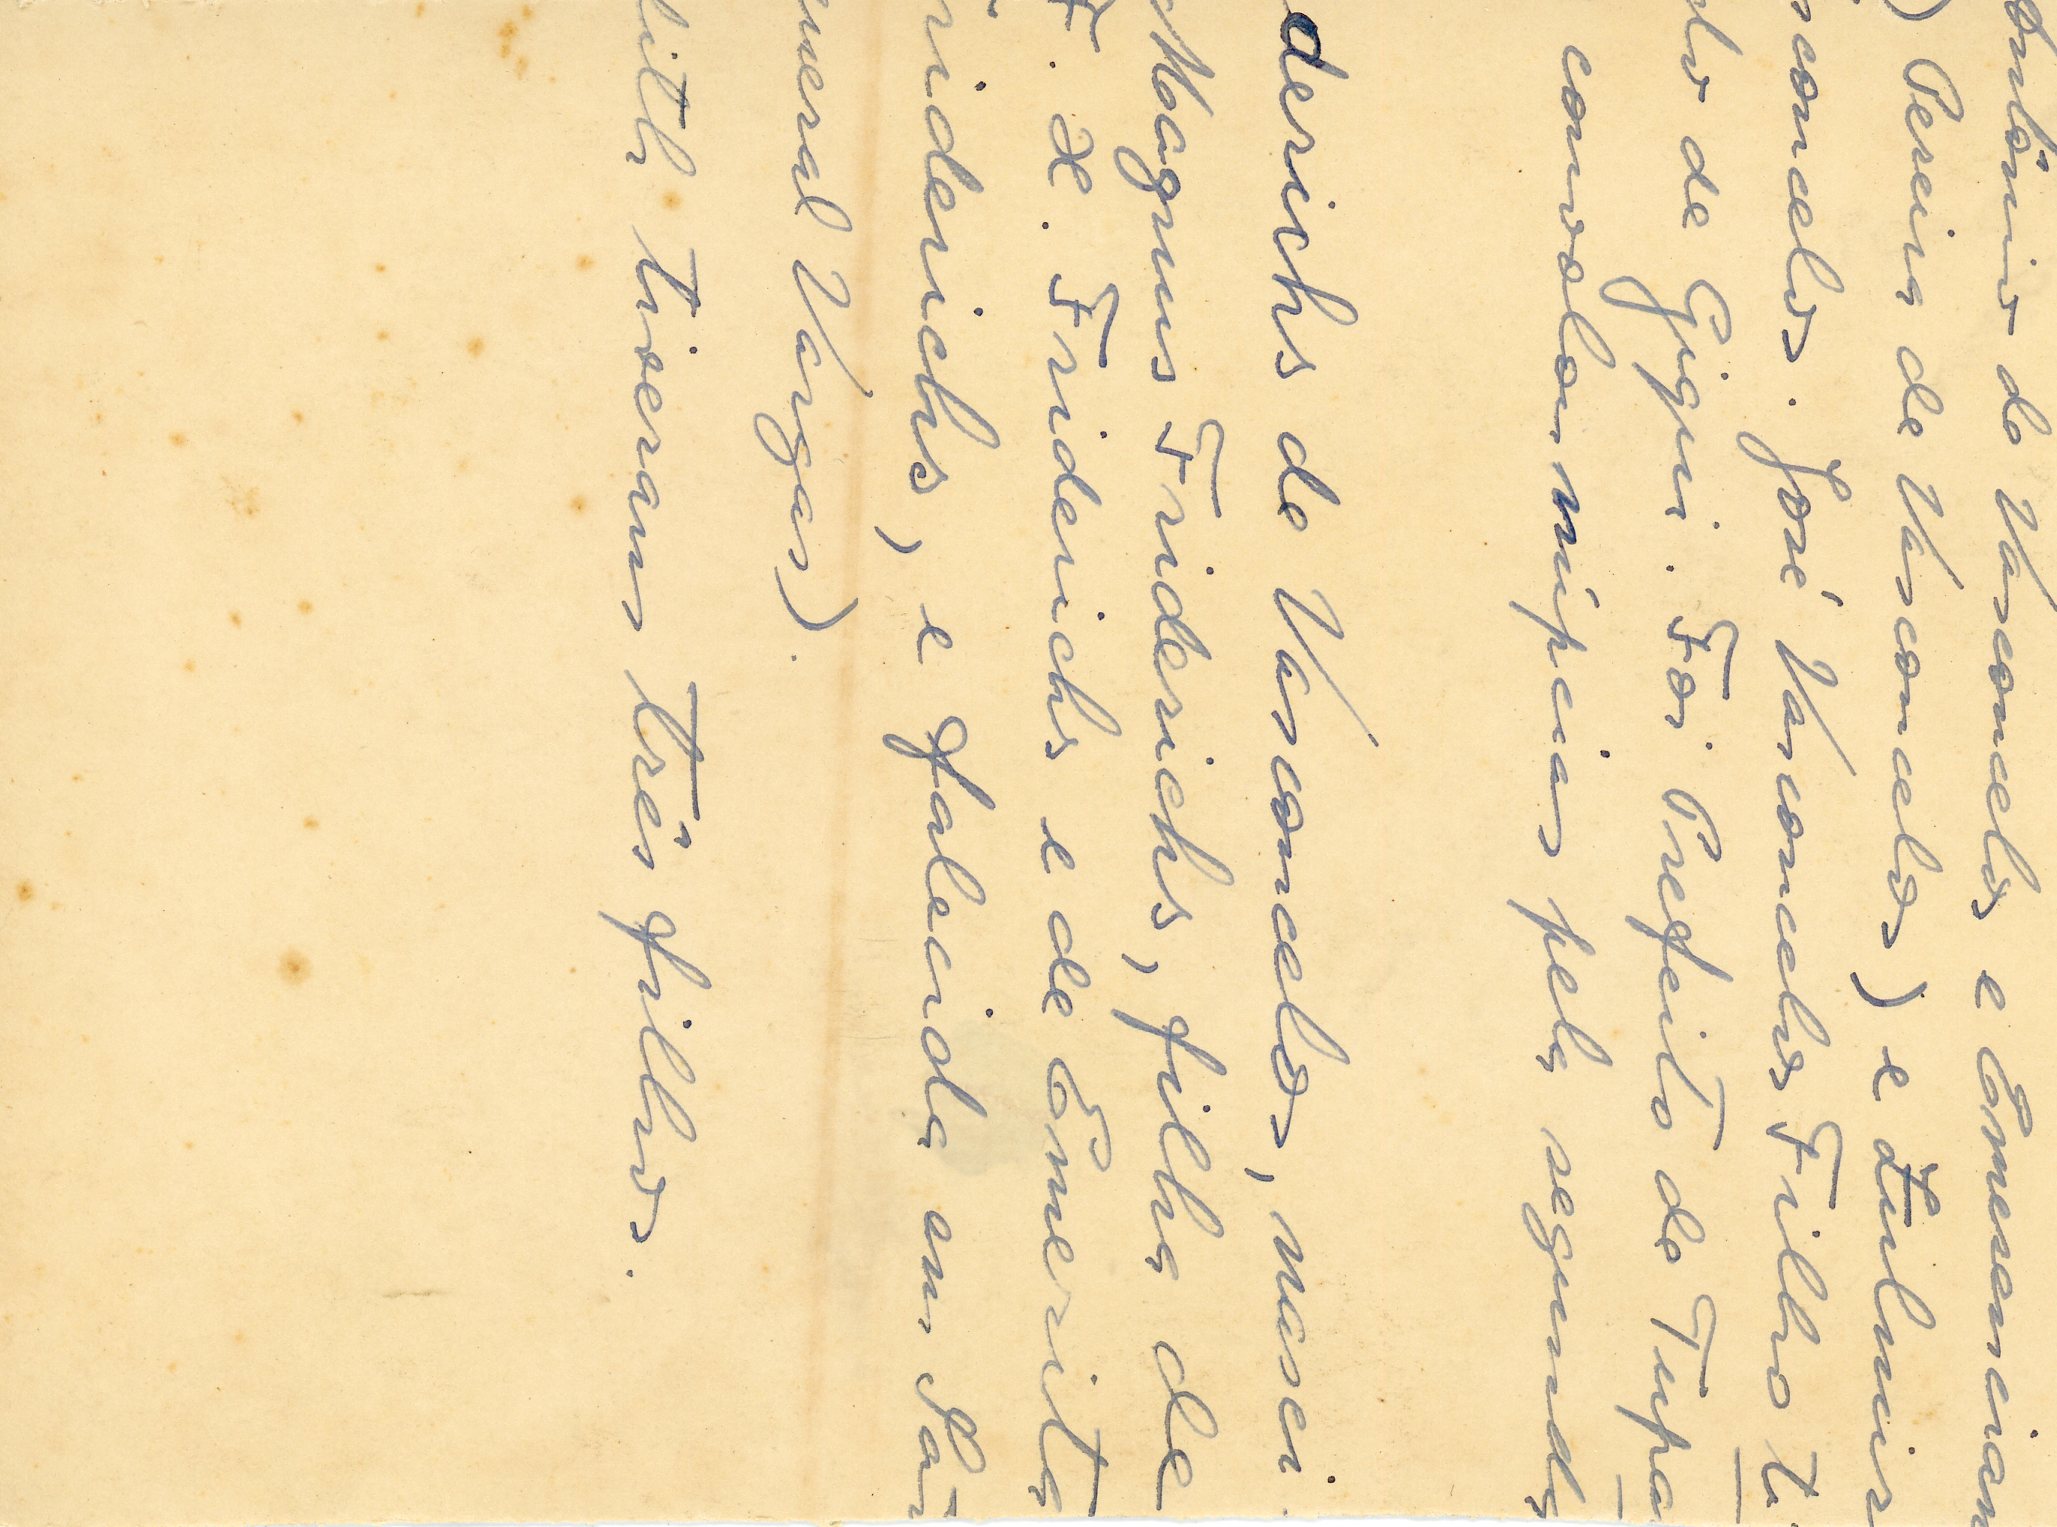 ntônio de Vasconcelos e Emerencian
) Pereira de Vasconcelos) e Zulmir
sconcelos. José Vasconcelos Filho ti
lo de Gigui. Foi Prefeito de Tupa
convolou núpcias pela segunda
derichs de Vasconcelos, nasci
Magnus Friderichs, filha de
F. X. Friderichs e de Emerita
riderichs, e falecida em São
neral Vargas).
lith tiveram três filhos.